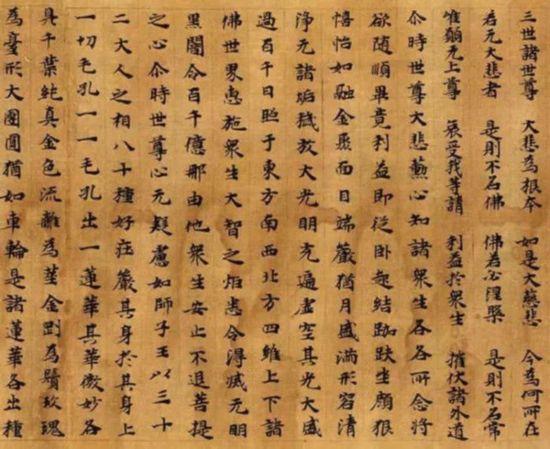 三世諸世尊　大悲為根本　如是大慈悲　今為何所在
若无大悲者　是則不名佛　佛若必涅槃　是則不名常
惟願无上尊　哀受我等請　利益於衆生　摧伏諸外道
尒時世尊大悲薰心知諸衆生各各所念將
欲随順畢竟利益即從卧起結跏趺坐顏貌
憘怡如融金聚面目端嚴猶月盛滿形容清
淨无諸垢穢放大光明充遍虛空其光大盛
過百千日照于東方南西北方四維上下諸
佛世界惠施衆生大智之炬悉令得滅无明
黑闇令百千億那由他衆生安止不退菩提
之心尒時世尊心无疑慮如師子王以三十
二大人之相八十種好莊嚴其身於其身上
一切毛孔一一毛孔出一蓮華其華微妙各
具千葉純真金色流離為莖金剛為鬚玫瑰
為臺形大團圓猶如車輪是諸蓮華各出種